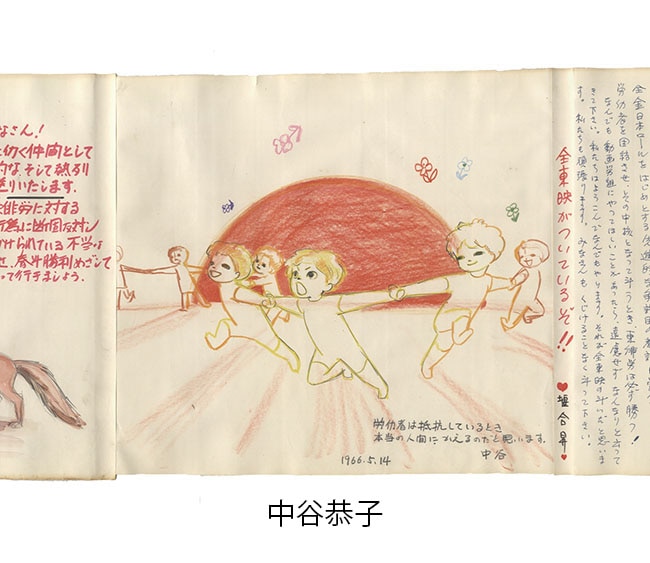 全金日本ロールをはじめとする
労仂者を団結させ、その中核となって斗うとき、東俳労は必ず勝つ!
なんでも動画労組にやってほしいことがあったら、遠慮せず なんなりと云って
きて下さい。私たちはよろこんでなんでもやります。それが全東映の斗いだと思いま
す。私たちも頑張ります。みなさんも くじけることなく斗って下さい。
全東映がついているぞ!!
♥堰合昇♥
なさん!
仂く仲間として
的な そして熱烈
送りいたします.
俳労に対する
断固な対し
けられている 不当な
せ、春斗勝利めざして
って行きましょう.
労仂者は抵抗しているとき
本当の人間にかえるのだと思います.
中谷
1966.5.14
中谷恭子